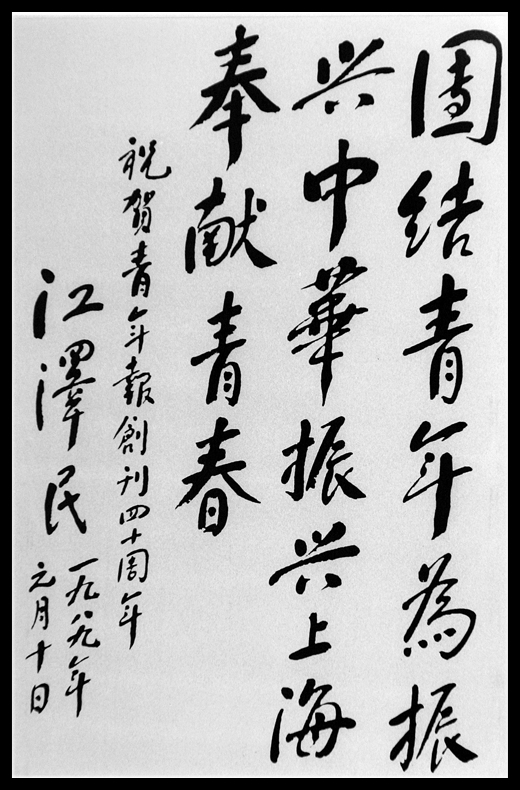 團结青年為振
兴中華振兴上海
奉献青春
祝賀青年報創刊四十周年
江澤民
一九八九年
元月十日